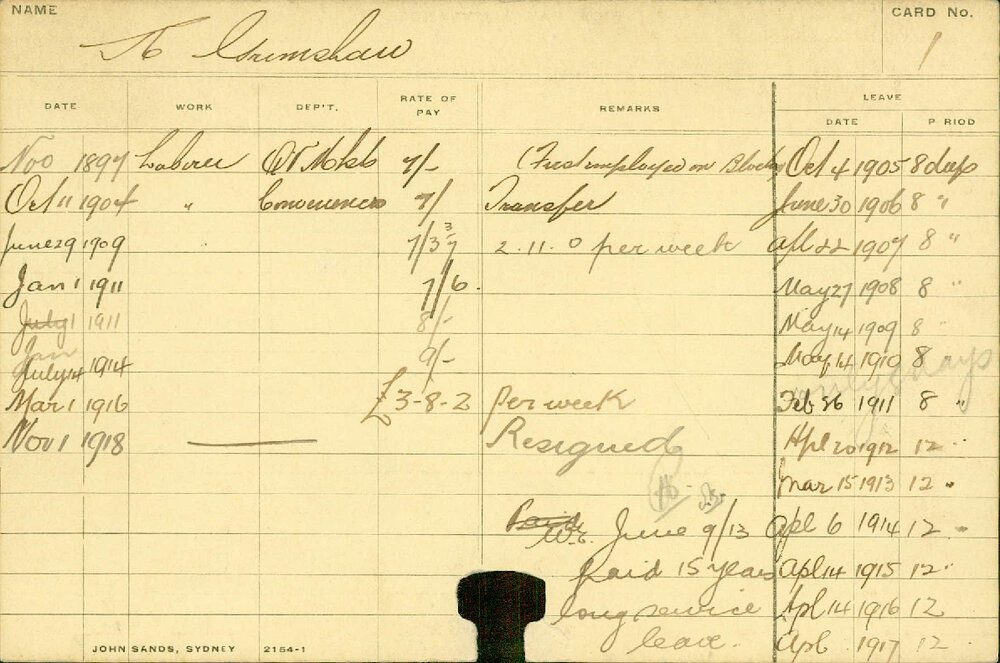 NAME
CARD No.
Grimshaw
1
DATE WORK DEP'T. RATE OF PAY REMARKS LEAVE
DATE P RIOD
Nov 1897 Laborer 7/- (First employed on Blocks) Oct 4 1905 8 days
Oct 11 1904 " Conveniences 7/ Transfer June 30 1906 8 "
June 29 1909 7/3 3/7 2.11.0 per week Apl 22 1907 8 "
Jan 1 1911 7/6. May 27 1908 8 "
July 1 1911 8/- May 14 1909 8 "
Jan
July 14 1914 9/- May 14 1910 8
days
Mar 1 1916 £3-8-2 per week Feb 26 1911 8 "
Nov 1 1918 Resigned Apl 20 1912 12 "
Mar 15 1913 12 "
June 9/13 Apl 6 1914 12 "
paid 15 years Apl 14 1915 12 "
long service Apl 14 1916 12
leave. Apl 1917 12 "
JOHN SANDS, SYDNEY 2154-1